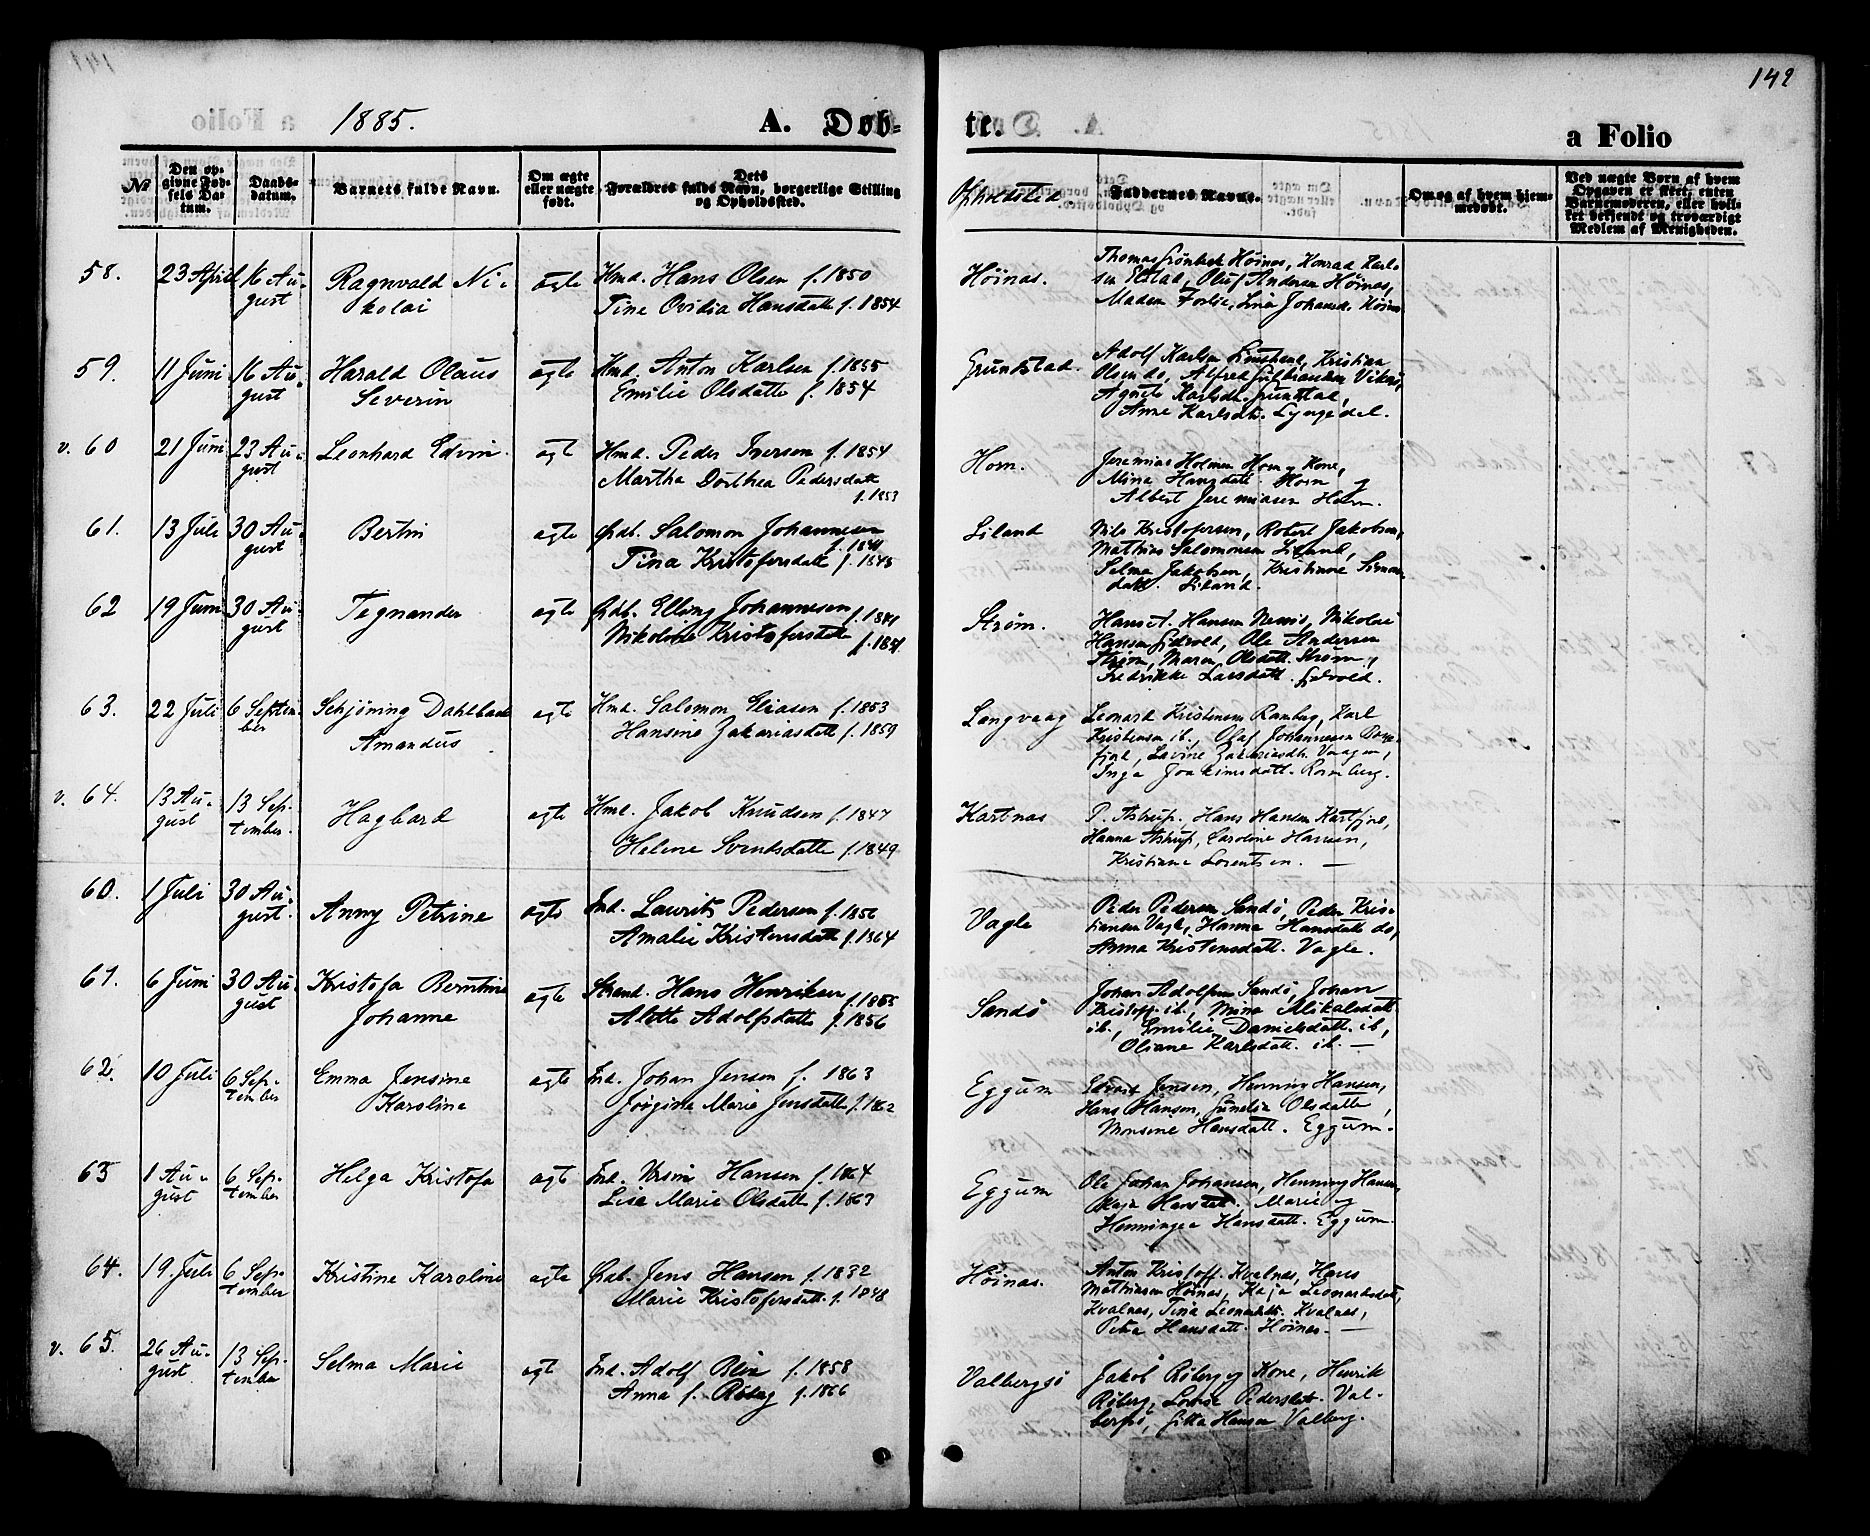 142
1885.
A. Døb-
te.
a Folio
№
Den op-
givne Fød-
sels Da-
tum.
Daabs-
datum.
Barnets fulde Navn.
Om ægte
eller uægte
født.
Dets
Forældres fulde Navn, borgerlige Stilling
og Opholdssted.
Opholdsted.
Faddernes Navne.
Om og af hvem hjem-
medøbt.
Ved uægte Børn af hvem
Opgaven er skeet, enten
Barnemoderen, eller hvil-
ket bekjendt og troværdigt
Medlem af Menigheden.
58. 23 April 16 Au-
gust
Ragnvald Ni-
kolai
ægte
Hmd. Hans Olsen f. 1850
Tine Ovidia Hansdatt f. 1854
Höinas.
Thomas Grönbek Höinas, Konrad Karl-
sen, Oluf Andersen Höinas,
Johansd. Höinas
59. 11 Juni 16 Au-
gust
Harald Olaus
Severin
ægte
Hmd. Anton Karlsen f. 1855
Emilie Olsdatte f. 1854
Grundstad.
Adolf Karlsen, Kristian
Olsen do, Alfred
Agnete Karlsd.
Anne Karlsdt. Lyngedal.
v. 60 21 Juni 23 Au-
gust
Leonhard Edvin.
ægte
Hmd. Peder Iversen f. 1854
Martha Dorthea Pedersdatt
f. 1853
Horn.
Jeremias Holmen Horn og Kone,
Mina Hansdatt. Horn og
Albert Jeremiasen Horn.
61. 13 Juli 30 Au-
gust
Bertin
ægte
Grdb. Salomon Johannesen
f. 1841
Tina Kristofersdatt f. 1845
Liland
Nils Kristofersen, Robert Jakobsen,
Mathias Salomonsen Liland,
Selma Jakobsen, Kristianne Simon-
datt. Liland.
62 19 Juni 30 Au-
gust
Tegnander
ægte
Grdb. Elling Johannesen f. 1841
Nikoline Kristofersdatt f. 1841
Strøm.
Hans A. Hansen, Nikolai
Hansen, Ole Andersen
Strøm, Maren Olsdatt. Strøm,
Fredrikke Larsdatt.
63. 22 Juli 6 Septem-
ber
Schjöning Dahlback
Amandus
ægte
Hmd. Salomon Eliasen f. 1853
Hansine Zakariasdatt f. 1859
Langvaag
Leonard Kristensen Ramberg, Karl
Kristensen ib., Olaf Johannesen
Lavine Zakariasdt.
Inga Joakimsdatt.
v. 64. 13 Au-
gust
13 Sep-
tember.
Hagbard
ægte
Hmd. Jakob Knudsen f. 1847
Helene Svendsdatte f. 1849
Kartnas
P. Astrup, Hans Hansen Kartfjord,
Hanna Astrup, Caroline Hansen,
Kristiane Lorentsen. —
60. 1 Juli 30 Au-
gust.
Anny Petrine
ægte
Ind. Laurits Pedersen f. 1856
Amalie Kristensdatt f. 1864
Vagle
Peder Pedersen Sandö, Peder Kris-
tiansen Vagle, Hanna Hansdatt do,
Anna Kristensdatt. Vagle.
61. 6 Juni 30 Au-
gust
Kristofa Berntine
Johanne
ægte
Strand. Hans Henriksen f. 1855
Alette Adolfsdatt f. 1856
Sandö
Johan Adolfsen Sandö, Johan
Kristoff. ib., Mina Mikalsdatt
ib., Emilie Danielsdatt. ib,
Oliane Karlsdatt. ib. —
62. 10 Juli 6 Sep-
tember
Emma Jensine
Karoline
ægte
Ind. Johan Jensen f. 1863
Jörgine Marie Jensdatte f. 1862
Eggum
Edvard Jensen, Henning Hansen,
Hans Hansen, Olsdatte,
Monsine Hansdatt. Eggum.
63 1 Au-
gust
6 Sep-
tember
Helga Kristofa
ægte
Ind. Ursin Hansen f. 1864
Lisa Marie Olsdatt f. 1863
Eggum
Ole Johan Johansen, Henning Hansen,
Maja Hansdatt, Marie og
Henningea Hansdatt. Eggum.
64. 19 Juli 6 Sep-
tember
Kristine Karoline
ægte
Grdb. Jens Hansen f. 1832
Marie Kristofersdatt. f. 1848
Höinas.
Anton Kristoff. Kvalnes, Hans
Mathiasen Höinas, Kaja Leonardsdatt,
Kvalnes, Tina Leonardsdt. Kvalnes,
Petra Hansdatt. Höinas. —
v. 65. 26 Au-
gust
13 Sep-
tember
Selma Marie
ægt
Ind. Adolf Blix f. 1858
Anna f. Röberg f. 1866
Valbergsö
Jakob Röberg og Kone, Henrik
Röberg, Lovise Pedersdat. Val-
bergsö, Gitta Hansen Valberg.